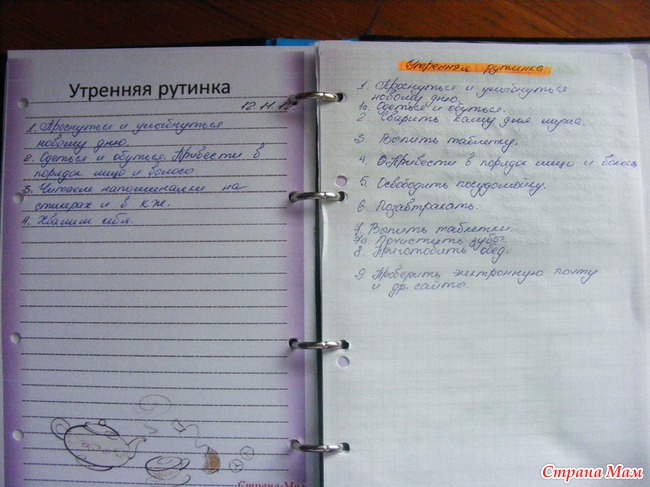 Утренняя рутинка
12.11.
1. Проснуться и улыбнуться
новому дню.
2. Одеться и обуться. Привести в
порядок лицо и волосы.
3. Читаем напоминалки на
стикерах и в к.ж.
4. Хвалим себя.
Утренняя рутинка
1. Проснуться и улыбнуться
новому дню.
1а Одеться и обуться.
2. Сварить кашу для мужа.
3. Выпить таблетку.
4. Привести в порядок лицо и волосы
5. Освободить посудомойку.
6. Позавтракать.
7. Выпить таблетки.
7а Почистить зубы.
8. Приготовить обед.
9. Проверить электронную почту
и др. сайты.
Страна Мам
Страна Мам